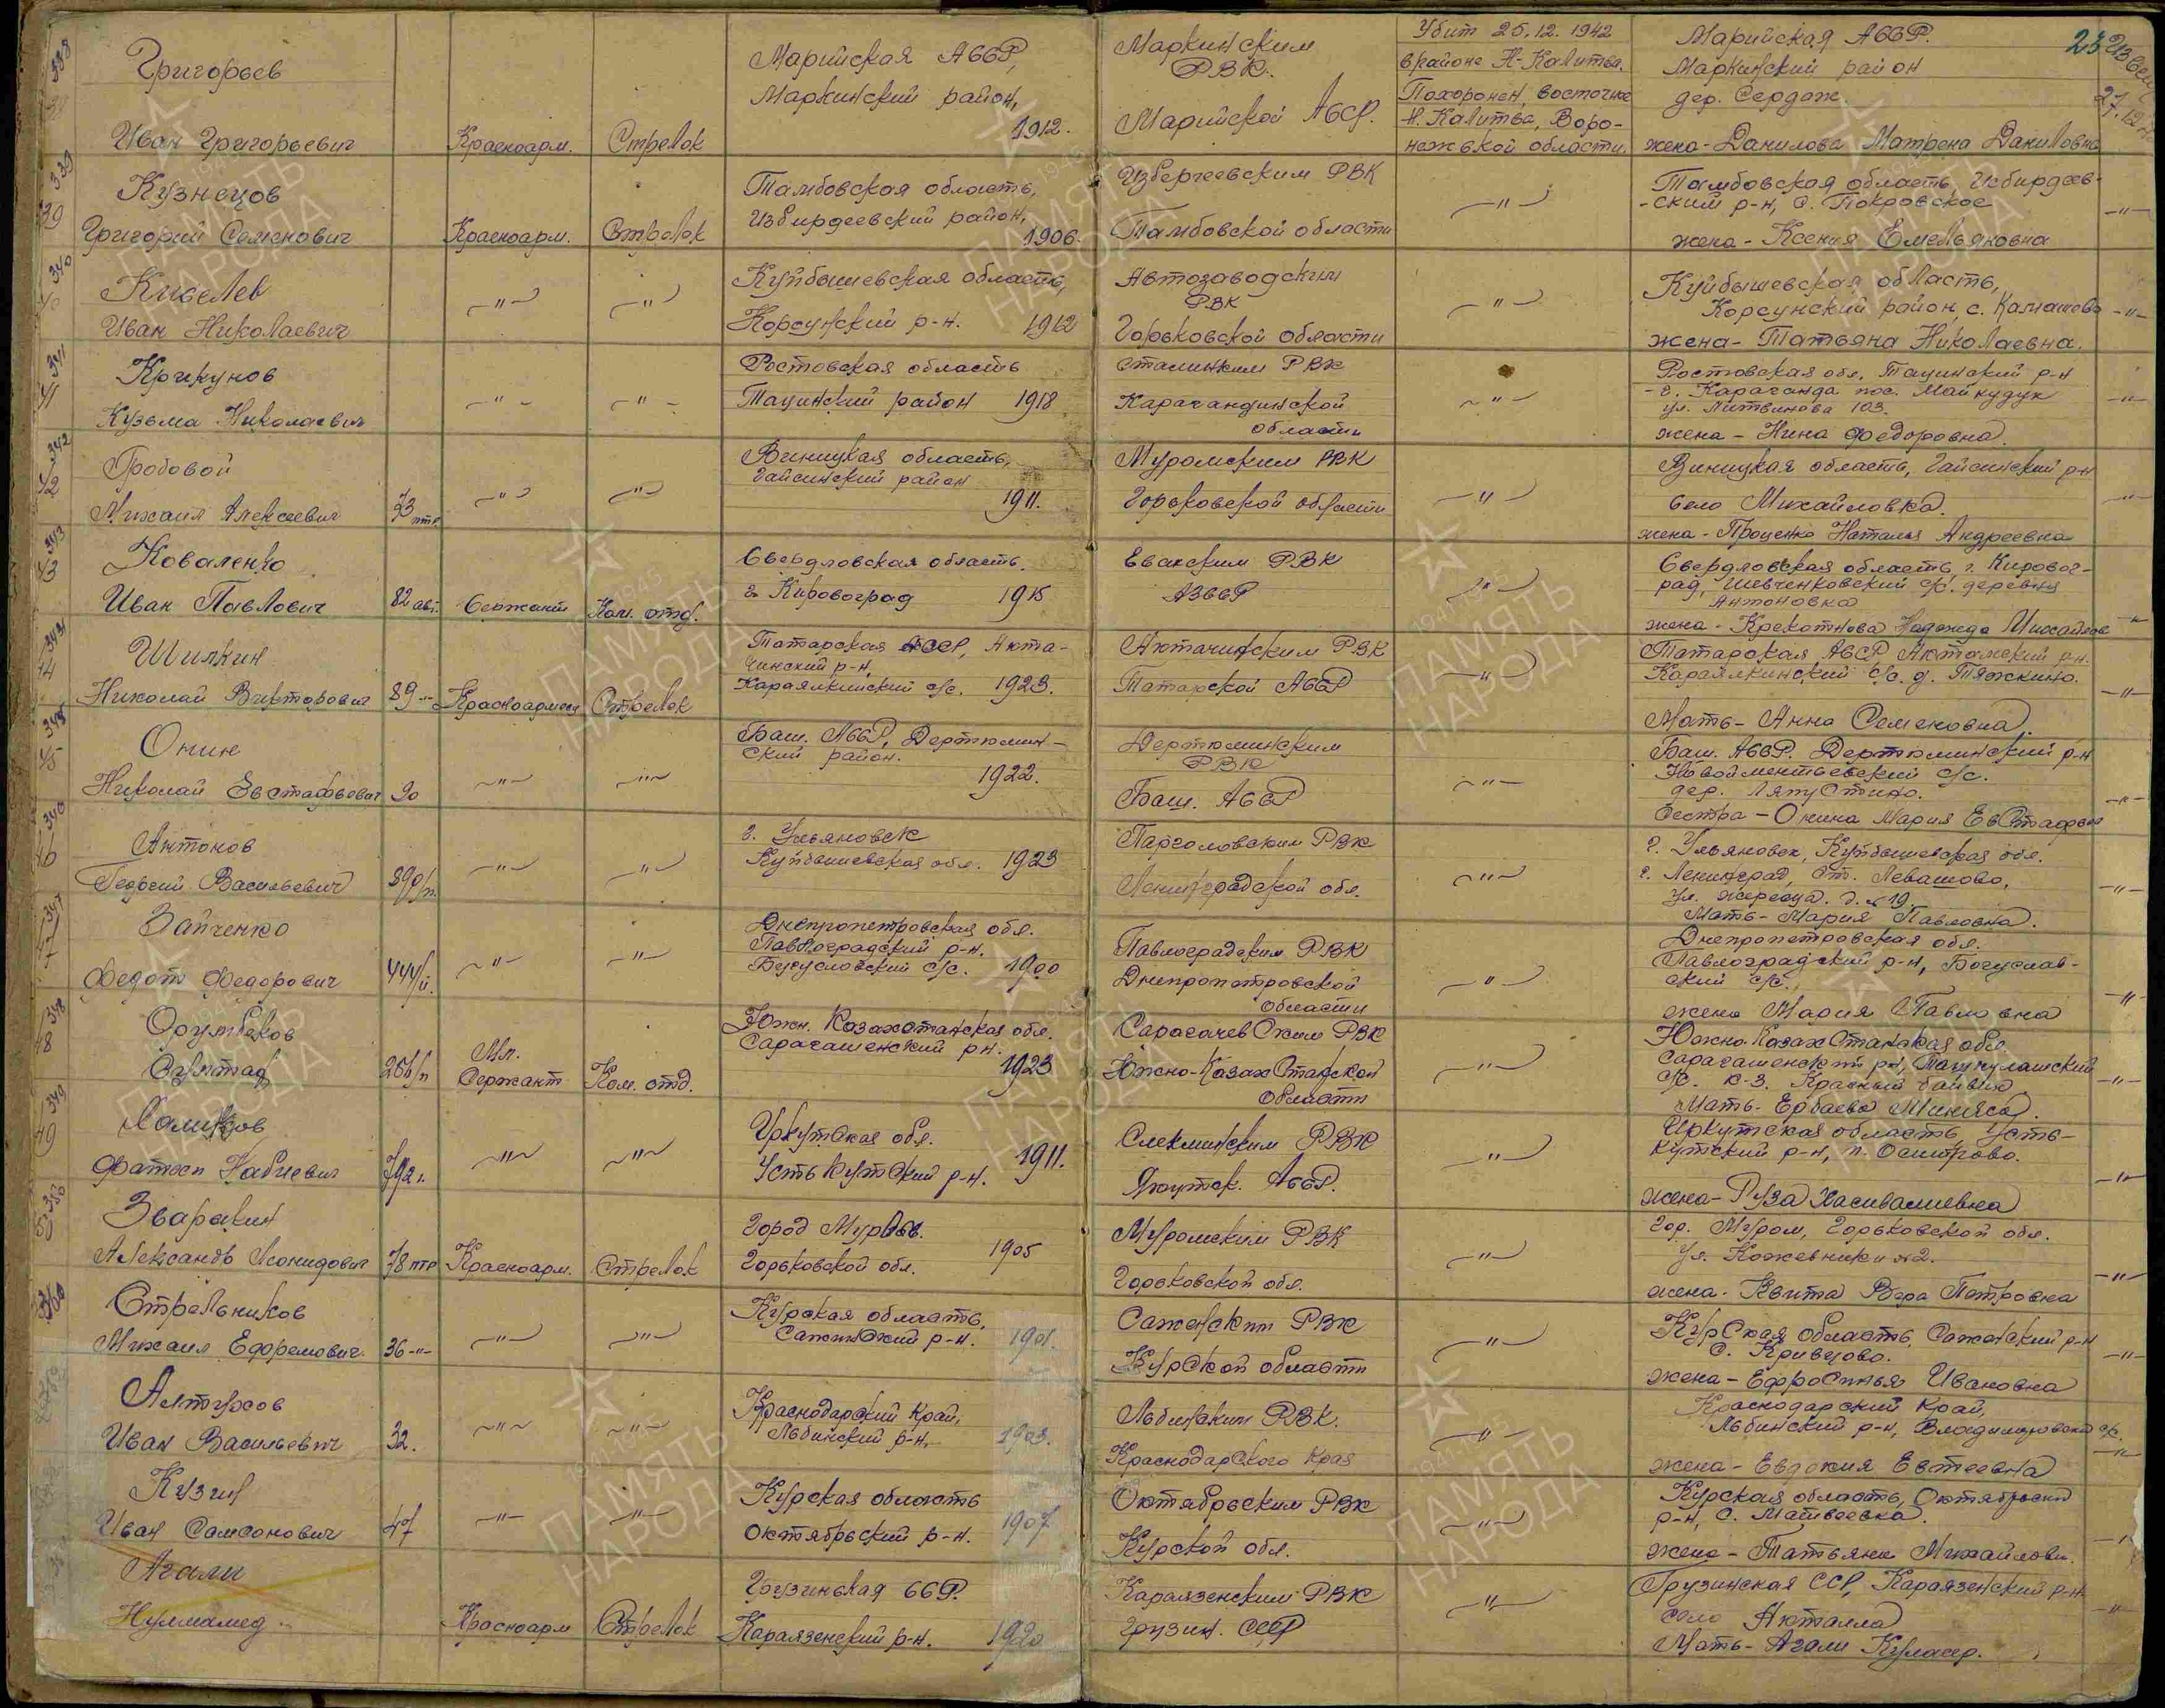 338
Григорьев
Иван Григорьевич
Красноарм.
Стрелок
Марийская АССР,
Маркинский район,
1912.
Маркинским
РВК.
Марийской АССР.
Убит 25.12.1942
в районе Н-Калитва.
Похоронен, восточнее
Н. Калитва, Воро-
нежской области.
Марийская АССР.
Маркинский район
дер. Сердаж.
жена - Данилова Матрена Даниловна
23
339
Кузнецов
Григорий Семенович
Красноарм.
Стрелок
Тамбовская область,
Избирдеевский район,
1906.
Избердеевским РВК
Тамбовской области
—"—
Тамбовская область, Избирдеев-
-ским р-н, с. Покровское
жена - Ксения Емельяновна
—"—
340
Киселев
Иван Николаевич
—"—
—"—
Куйбышевская область,
Корсунский р-н. 1912
Автозаводским
РВК
Горьковской области
—"—
Куйбышевская область,
Корсунский район, с.
жена - Татьяна Николаевна.
—"—
341
Крикунов
Кузьма Николаевич
—"—
—"—
Ростовская область
Тацинский район 1918
Сталинским РВК
Карагандинской
области
—"—
Ростовская обл. Тацинский р-н
- г. Караганда пос. Майкудук
ул. Литвинова 103.
жена - Нина Федоровна.
—"—
342
Гробовой
Михаил Алексеевич
73 птр
—"—
—"—
Виницкая область,
Гайсинский район
1911.
Муромским РВК
Горьковской области
—"—
Виницкая область, Гайсинский р-н
село Михайловка.
жена - Проценко Наталья Андреевна
—"—
343
Коваленко
Иван Павлович
82 авт.
Сержант
Ком. отд.
Свердловская область.
г. Кировоград 1915
Евакским РВК
АЗССР
—"—
Свердловская область, г. Кировог-
рад, Шевченковский с/с. деревня
Антоновка
жена - Надежда
—"—
Шилкин
Николай Викторович
89 —"—
Красноармеец
Стрелок
Татарская АССР, Акта-
чинский р-н,
Караялкинский с/с. 1923.
Актачинским РВК
Татарской АССР
—"—
Татарская АССР р-н.
Караялкинский с/с. д. Тяжкино.
Мать - Анна Семеновна.
—"—
345
Онин
Николай Евстафьевич
90
—"—
—"—
Баш. АССР, Дертюлин-
ский район.
1922.
Дертюлинским
РВК
Баш. АССР
—"—
Баш. АССР. Дертюлинский р-н
с/с.
дер. Ляпустино.
Сестра - Онина Мария
—"—
346
Антонов
Георгий Васильевич
—"—
—"—
г. Ульяновск
Куйбышевская обл. 1923
Парголовским РВК
Ленинградской обл.
—"—
г. Ульяновск, Куйбышевская обл.
г. Ленинград, ст. Левашово,
ул. д. № 19.
Мать - Мария Павловна.
—"—
347
Зайченко
Федот Федорович
—"—
—"—
Днепропетровская обл.
Павлоградский р-н.
Бугусловский с/с. 1900
Павлоградским РВК
Днепропетровской
области
—"—
Днепропетровская обл.
Павлоградский р-н, Богуслав-
ский с/с.
жена Мария Павловна
—"—
348
Орумбеков
Мл.
Сержант
Ком. отд.
Южн. Казахстанская обл.
Сарагашенский рн.
1923
Сарагачевским РВК
Южно-Казахстанской
области
—"—
Южно-Казахстанская обл.
Сарагашенский рн,
с/с. к-з. Красный
Мать -
—"—
349
Набиевич
—"—
—"—
Иркутская обл.
Усть Кутский р-н. 1911.
РВК
Якутск. АССР.
—"—
Иркутская область, Усть-
кутский р-н, п. Осетрово.
жена -
—"—
350
Зварыкин
Александр Леонидович
78 птр
Красноарм.
Стрелок
Город Муром.
Горьковской обл.
1905
Муромским РВК
Горьковской обл.
—"—
Гор. Муром, Горьковской обл.
ул. Кожевники №2.
жена - Квита Вера Петровна
—"—
Стрельников
Михаил Ефремович.
36 —"—
—"—
—"—
Курская область,
Саженский р-н. 1901.
Саженским РВК
Курской области
—"—
Курская область, Саженский р-н
с. Кривцово.
жена - Ефросинья Ивановна
—"—
Алтухов
Иван Васильевич
32.
—"—
—"—
Краснодарский Край,
Лабинский р-н, 1903.
Лабинским РВК.
Краснодарского Края
—"—
Краснодарский Край,
Лабинский р-н, с/с.
жена - Евдокия Евтеевна
—"—
Кузин
Иван Самсонович
47
—"—
—"—
Курская область
Октябрьский р-н. 1907.
Октябрьским РВК
Курской обл.
—"—
Курская область, Октябрьский
р-н, с. Матвеевка.
жена - Татьяна Михайловн.
—"—
Агали
Нулмамед
Красноарм
Стрелок
Грузинская ССР.
Караязенский р-н. 1920
Караязенским РВК
Грузин. ССР
—"—
Грузинская ССР, Караязенский р-н
село Акталла
Мать - Агали
—"—
ПАМЯТЬ
НАРОДА